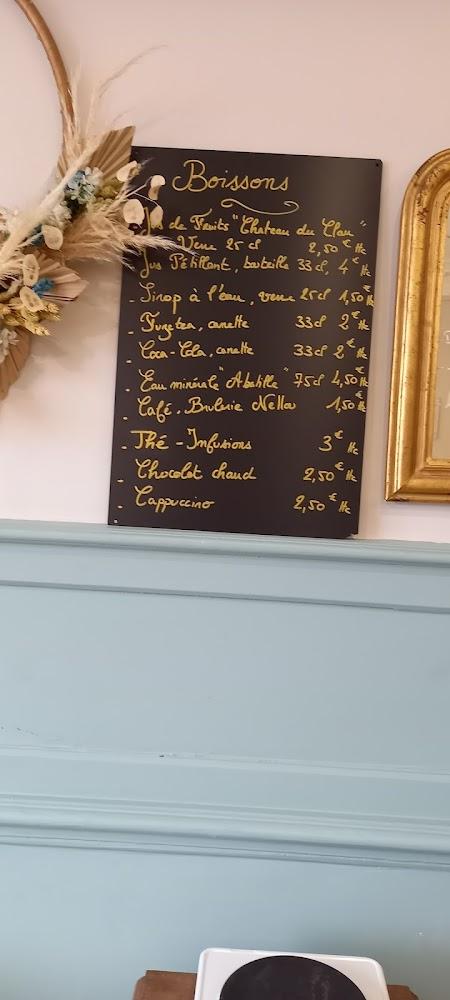 Boissons
Jus de Fruits "Chateau du Clau"
Verre 25 cl 2,50€ ttc
Jus Pétillant, bouteille 33 cl, 4€ ttc
- Sirop à l'eau, verre 25cl 1,50€ ttc
- Fuzetea, canette 33cl 2€ ttc
- Coca-Cola, canette 33cl 2€ ttc
- Eau minérale "Abatille" 75cl 4,50€ ttc
- Café, Brulerie Nellou 1,50€ ttc
- Thé - Infusions 3€ ttc
- Chocolat chaud 2,50€ ttc
- Cappuccino 2,50€ ttc